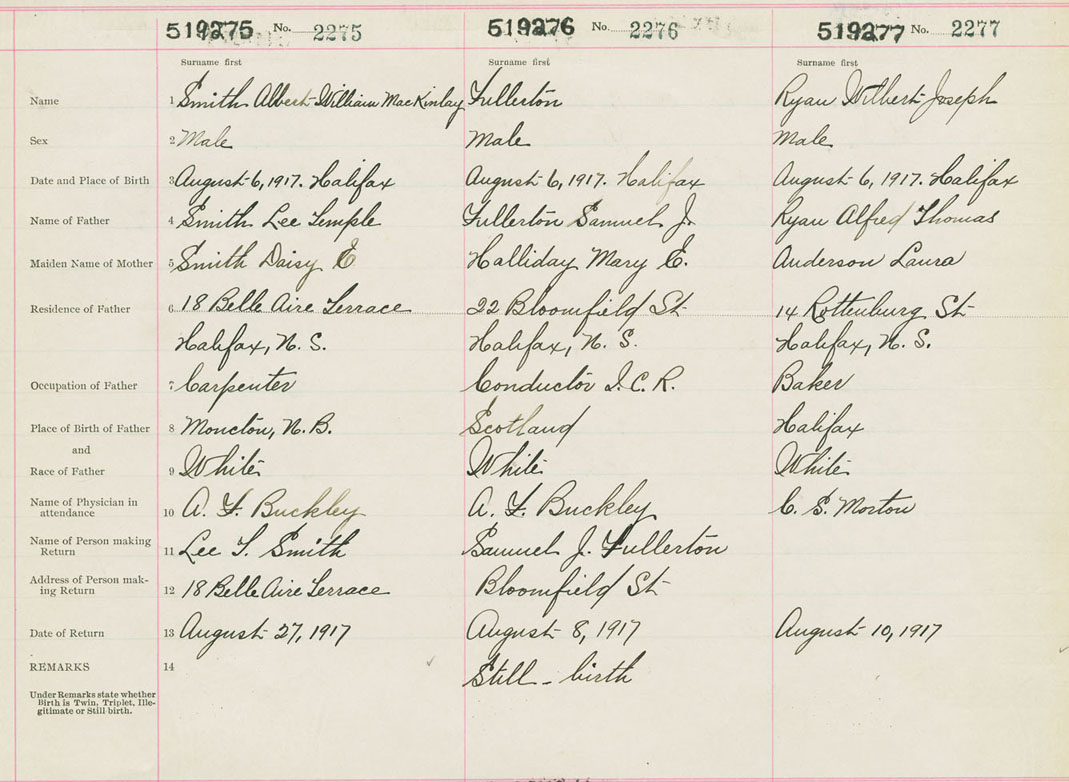 519275 No. 2275 519276 No. 2276 519277 No. 2277
Surname first Surname first Surname first
Name 1 Smith Albert William MacKinlay Fullerton Ryan Wilbert Joseph
Sex 2 Male Male Male
Date and Place of Birth 3 August 6, 1917. Halifax August 6, 1917. Halifax August 6, 1917. Halifax
Name of Father 4 Smith Lee Temple Fullerton Samuel J. Ryan Alfred Thomas
Maiden Name of Mother 5 Smith Daisy E Halliday Mary E. Anderson Laura
Residence of Father 6 18 Belle Aire Terrace 22 Bloomfield St 14 Rottenburg St
Halifax, N. S. Halifax, N. S. Halifax, N. S.
Occupation of Father 7 Carpenter Conductor I.C.R. Baker
Place of Birth of Father 8 Moncton, N.B. Scotland Halifax
and
Race of Father 9 White White White
Name of Physician in
attendance 10 A. F. Buckley A. F. Buckley C. S. Morton
Name of Person making
Return 11 Lee T. Smith Samuel J. Fullerton
Address of Person mak-
ing Return 12 18 Belle Aire Terrace Bloomfield St
Date of Return 13 August 27, 1917 August 8, 1917 August 10, 1917
REMARKS 14 Still - birth
Under Remarks state whether
Birth is Twin, Triplet, Ille-
gitimate or Still-birth.